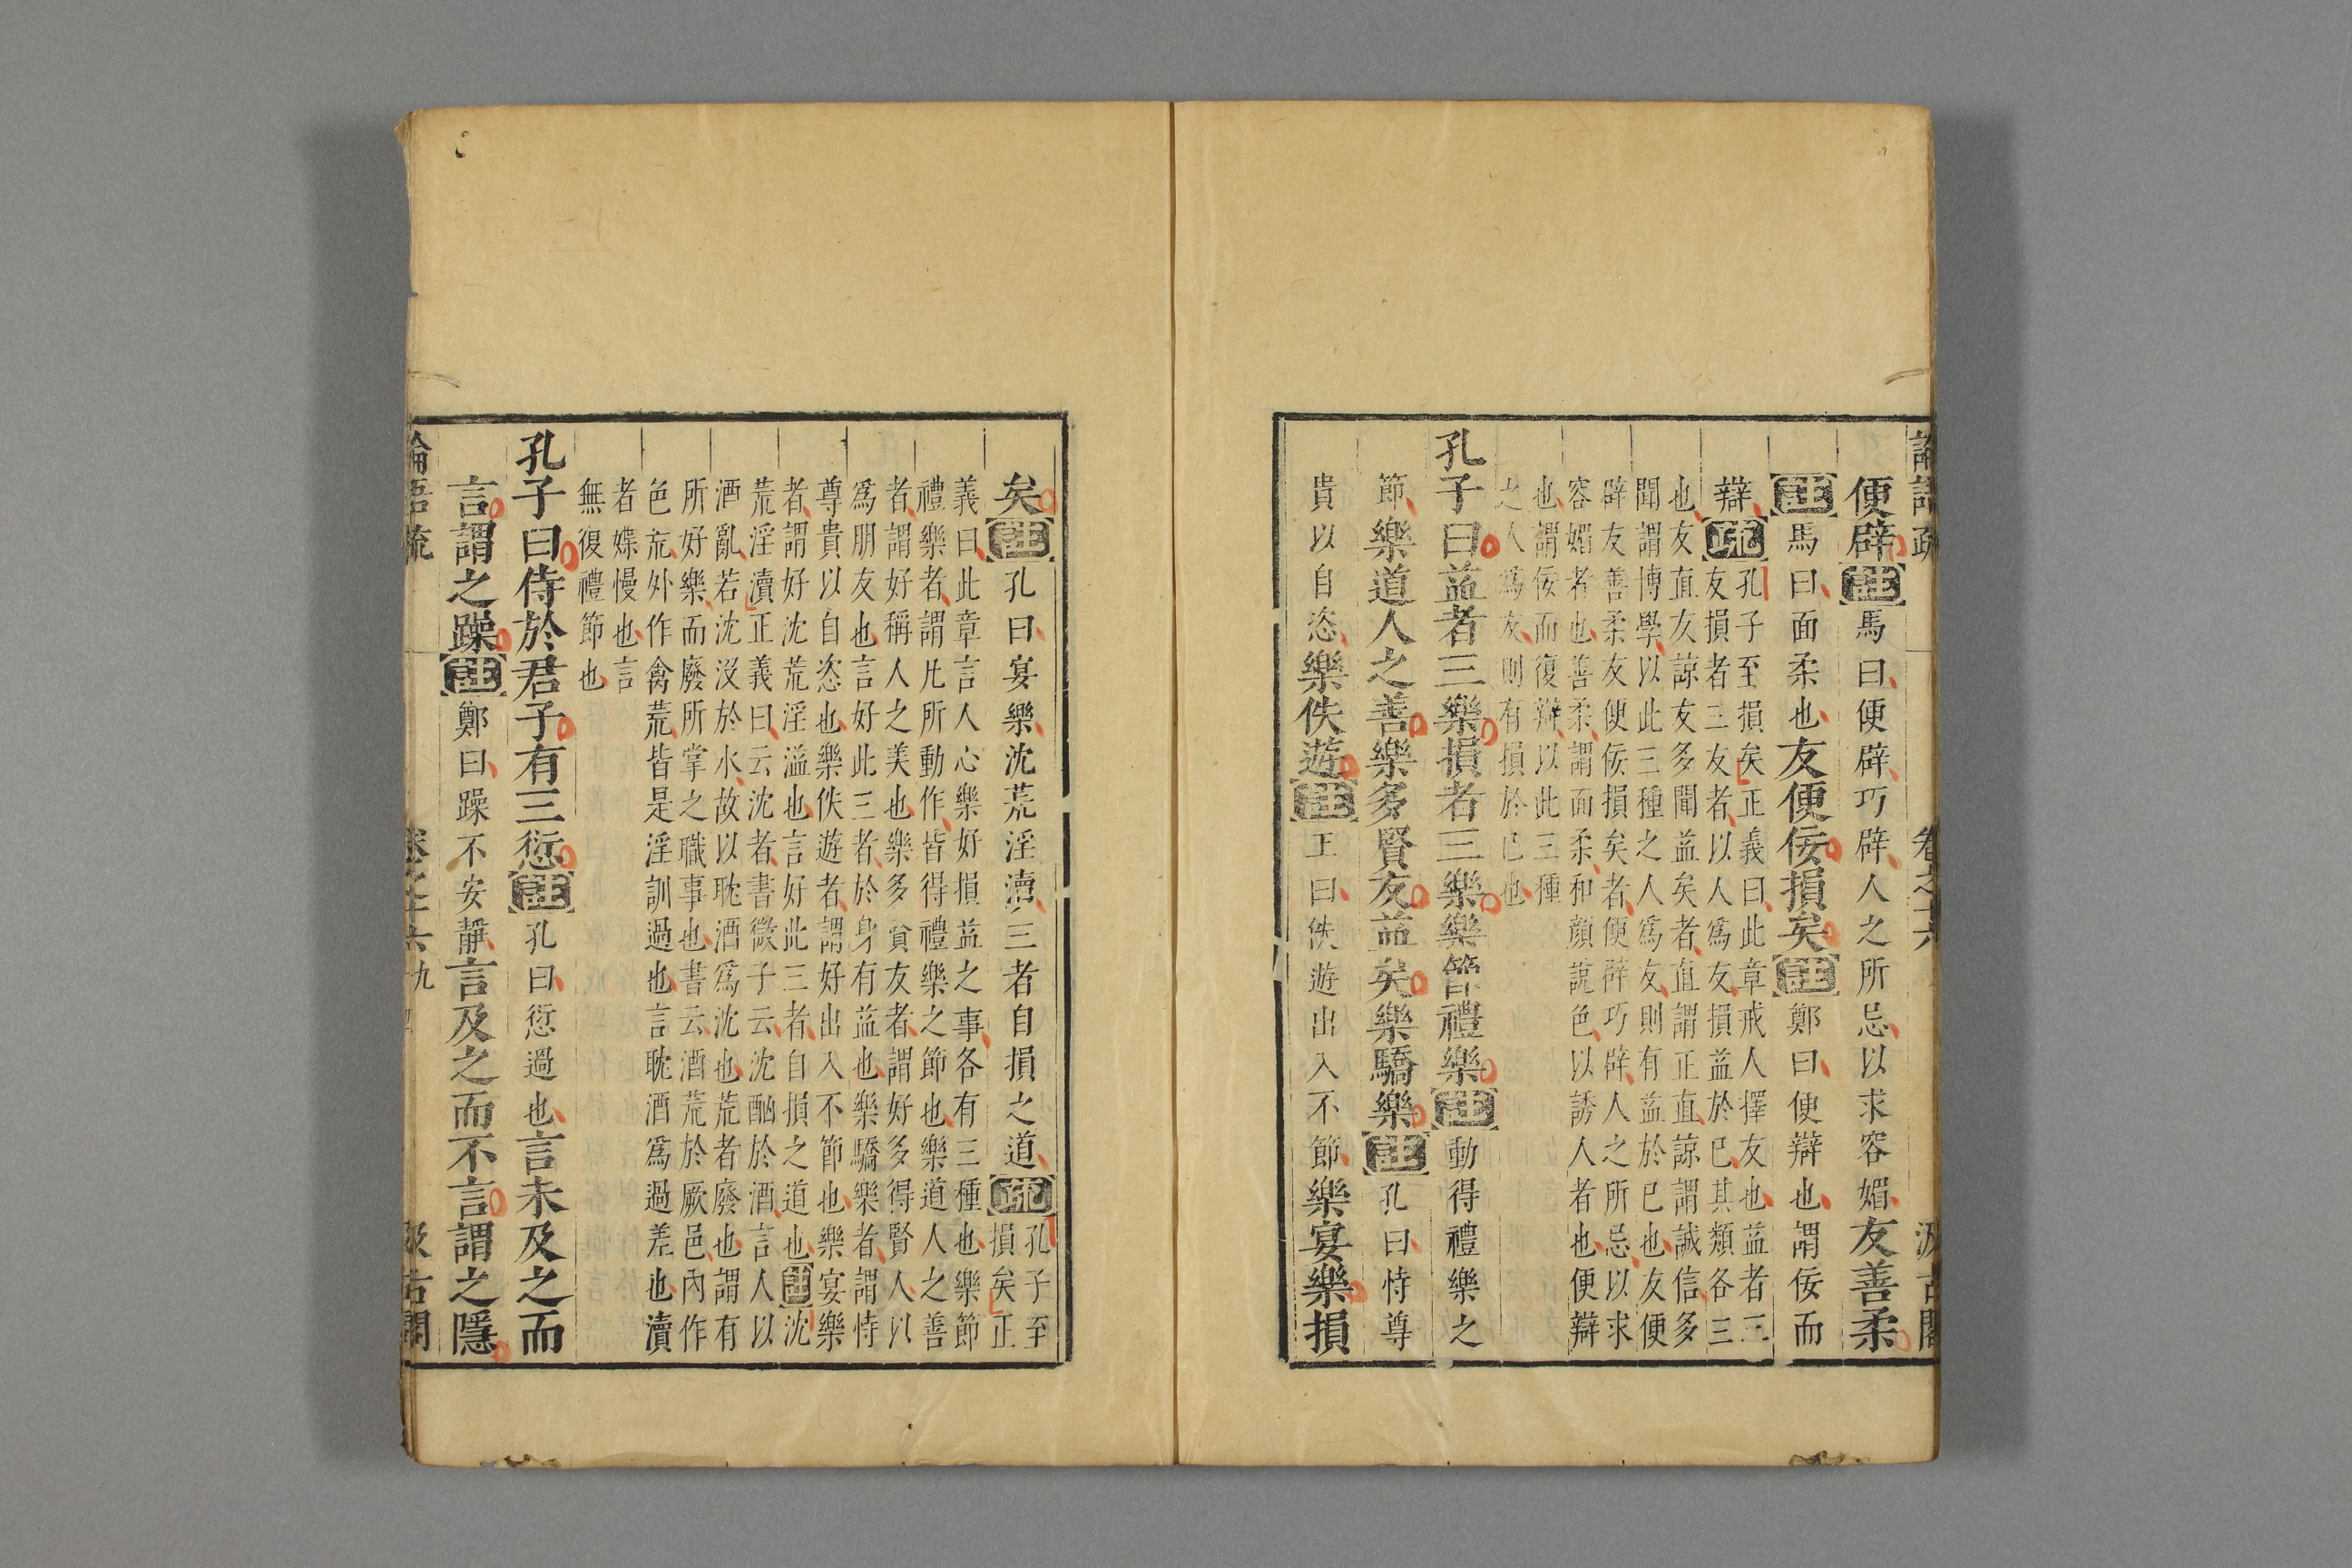 便辟註馬曰便辟巧辟人之所忌以求容媚友善柔
註馬曰面柔也友便佞損矣註鄭曰便辯也謂佞而
辯疏孔子至損矣正義曰此章戒人擇友也益者三
友損者三友者以人爲友損益於已其類各三
也友直友諒友多聞益矣者直謂正直諒謂誠信多
聞謂博學以此三種之人爲友則有益於已也友便
辟友善柔友便佞損矣者便辟巧辟人之所忌以求
容媚者也善柔謂面柔和顔說色以誘人者也便辯
也謂佞而復辯以此三種
之人爲友則有損於已也
孔子曰益者三樂損者三樂樂節禮樂註動得禮樂之
節樂道人之善樂多賢友益矣樂驕樂註孔曰恃尊
貴以自恣樂佚遊註王曰佚遊出入不節樂宴樂損
矣註孔曰宴樂沈荒淫瀆三者自損之道疏孔子至
損矣正
義曰此章言人心樂好損益之事各有三種也樂節
禮樂者謂凡所動作皆得禮樂之節也樂道人之善
者謂好稱人之美也樂多賢友者謂好多得賢人以
爲朋友也言好此三者於身有益也樂驕樂者謂恃
尊貴以自恣也樂佚遊者謂好出入不節也樂宴樂
者謂好沈荒淫溢也言好此三者自損之道也註沈
荒淫瀆正義曰云沈者書微子云沈酗於酒言人以
酒亂若沈沒於水故以耽酒爲沈也荒者廢也謂有
所好樂而廢所掌之職事也書云酒荒於厥邑內作
色㡆外作禽荒皆是淫訓過也言耽酒爲過差也瀆
者媟慢也言
無復禮節也
孔子曰侍於君子有三愆註孔曰愆過也言未及之而
言謂之躁註鄭曰躁不安靜言及之而不言謂之隱